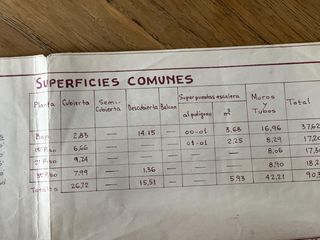 SUPERFICIES COMUNES
Planta Cubierta Semi-Cubierta Descubierta Balcon Superpuestas escalera al polígono m² Muros y Tubos Total
Baja 2,83 — 14,15 — 00-01 3,68 16,96
1er Piso 6,66 — — — 01-01 2,25 8,29
2º Piso 9,24 — — — — — 8,06
3er Piso 7,99 — 1,36 — — — 8,90
Totales 26,72 — 15,51 — 5,93 42,21